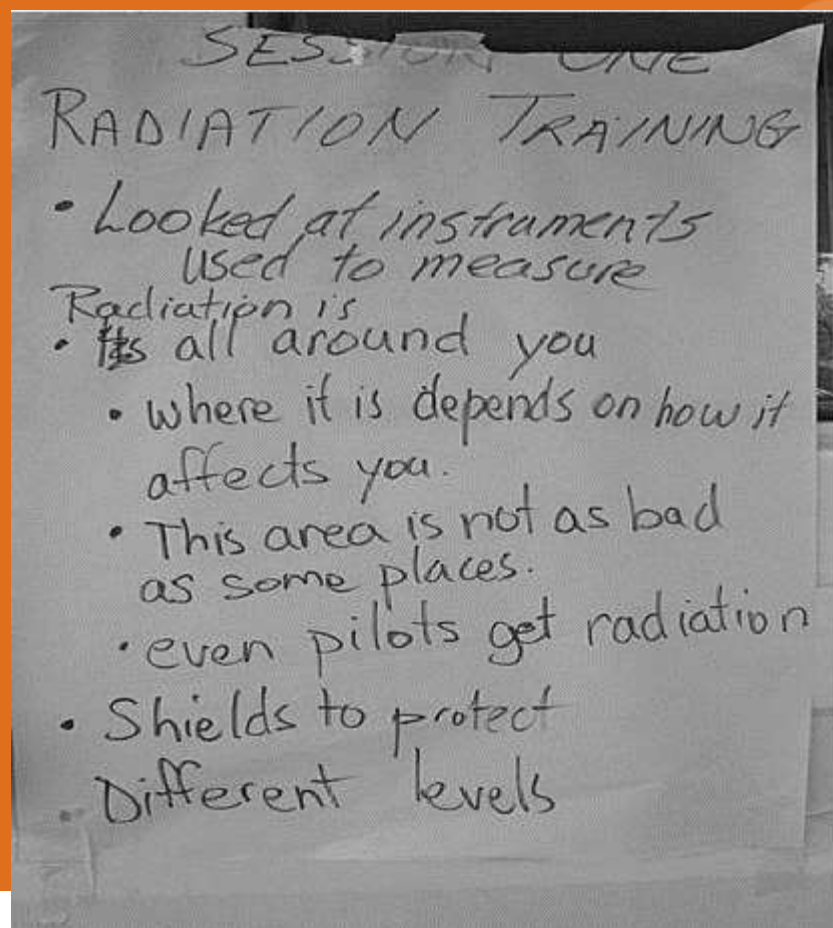 SESSION ONE
RADIATION TRAINING
• Looked at instruments
used to measure
Radiation is
• Its all around you
• where it is depends on how it
affects you.
• This area is not as bad
as some places.
• even pilots get radiation
• Shields to protect
• Different levels